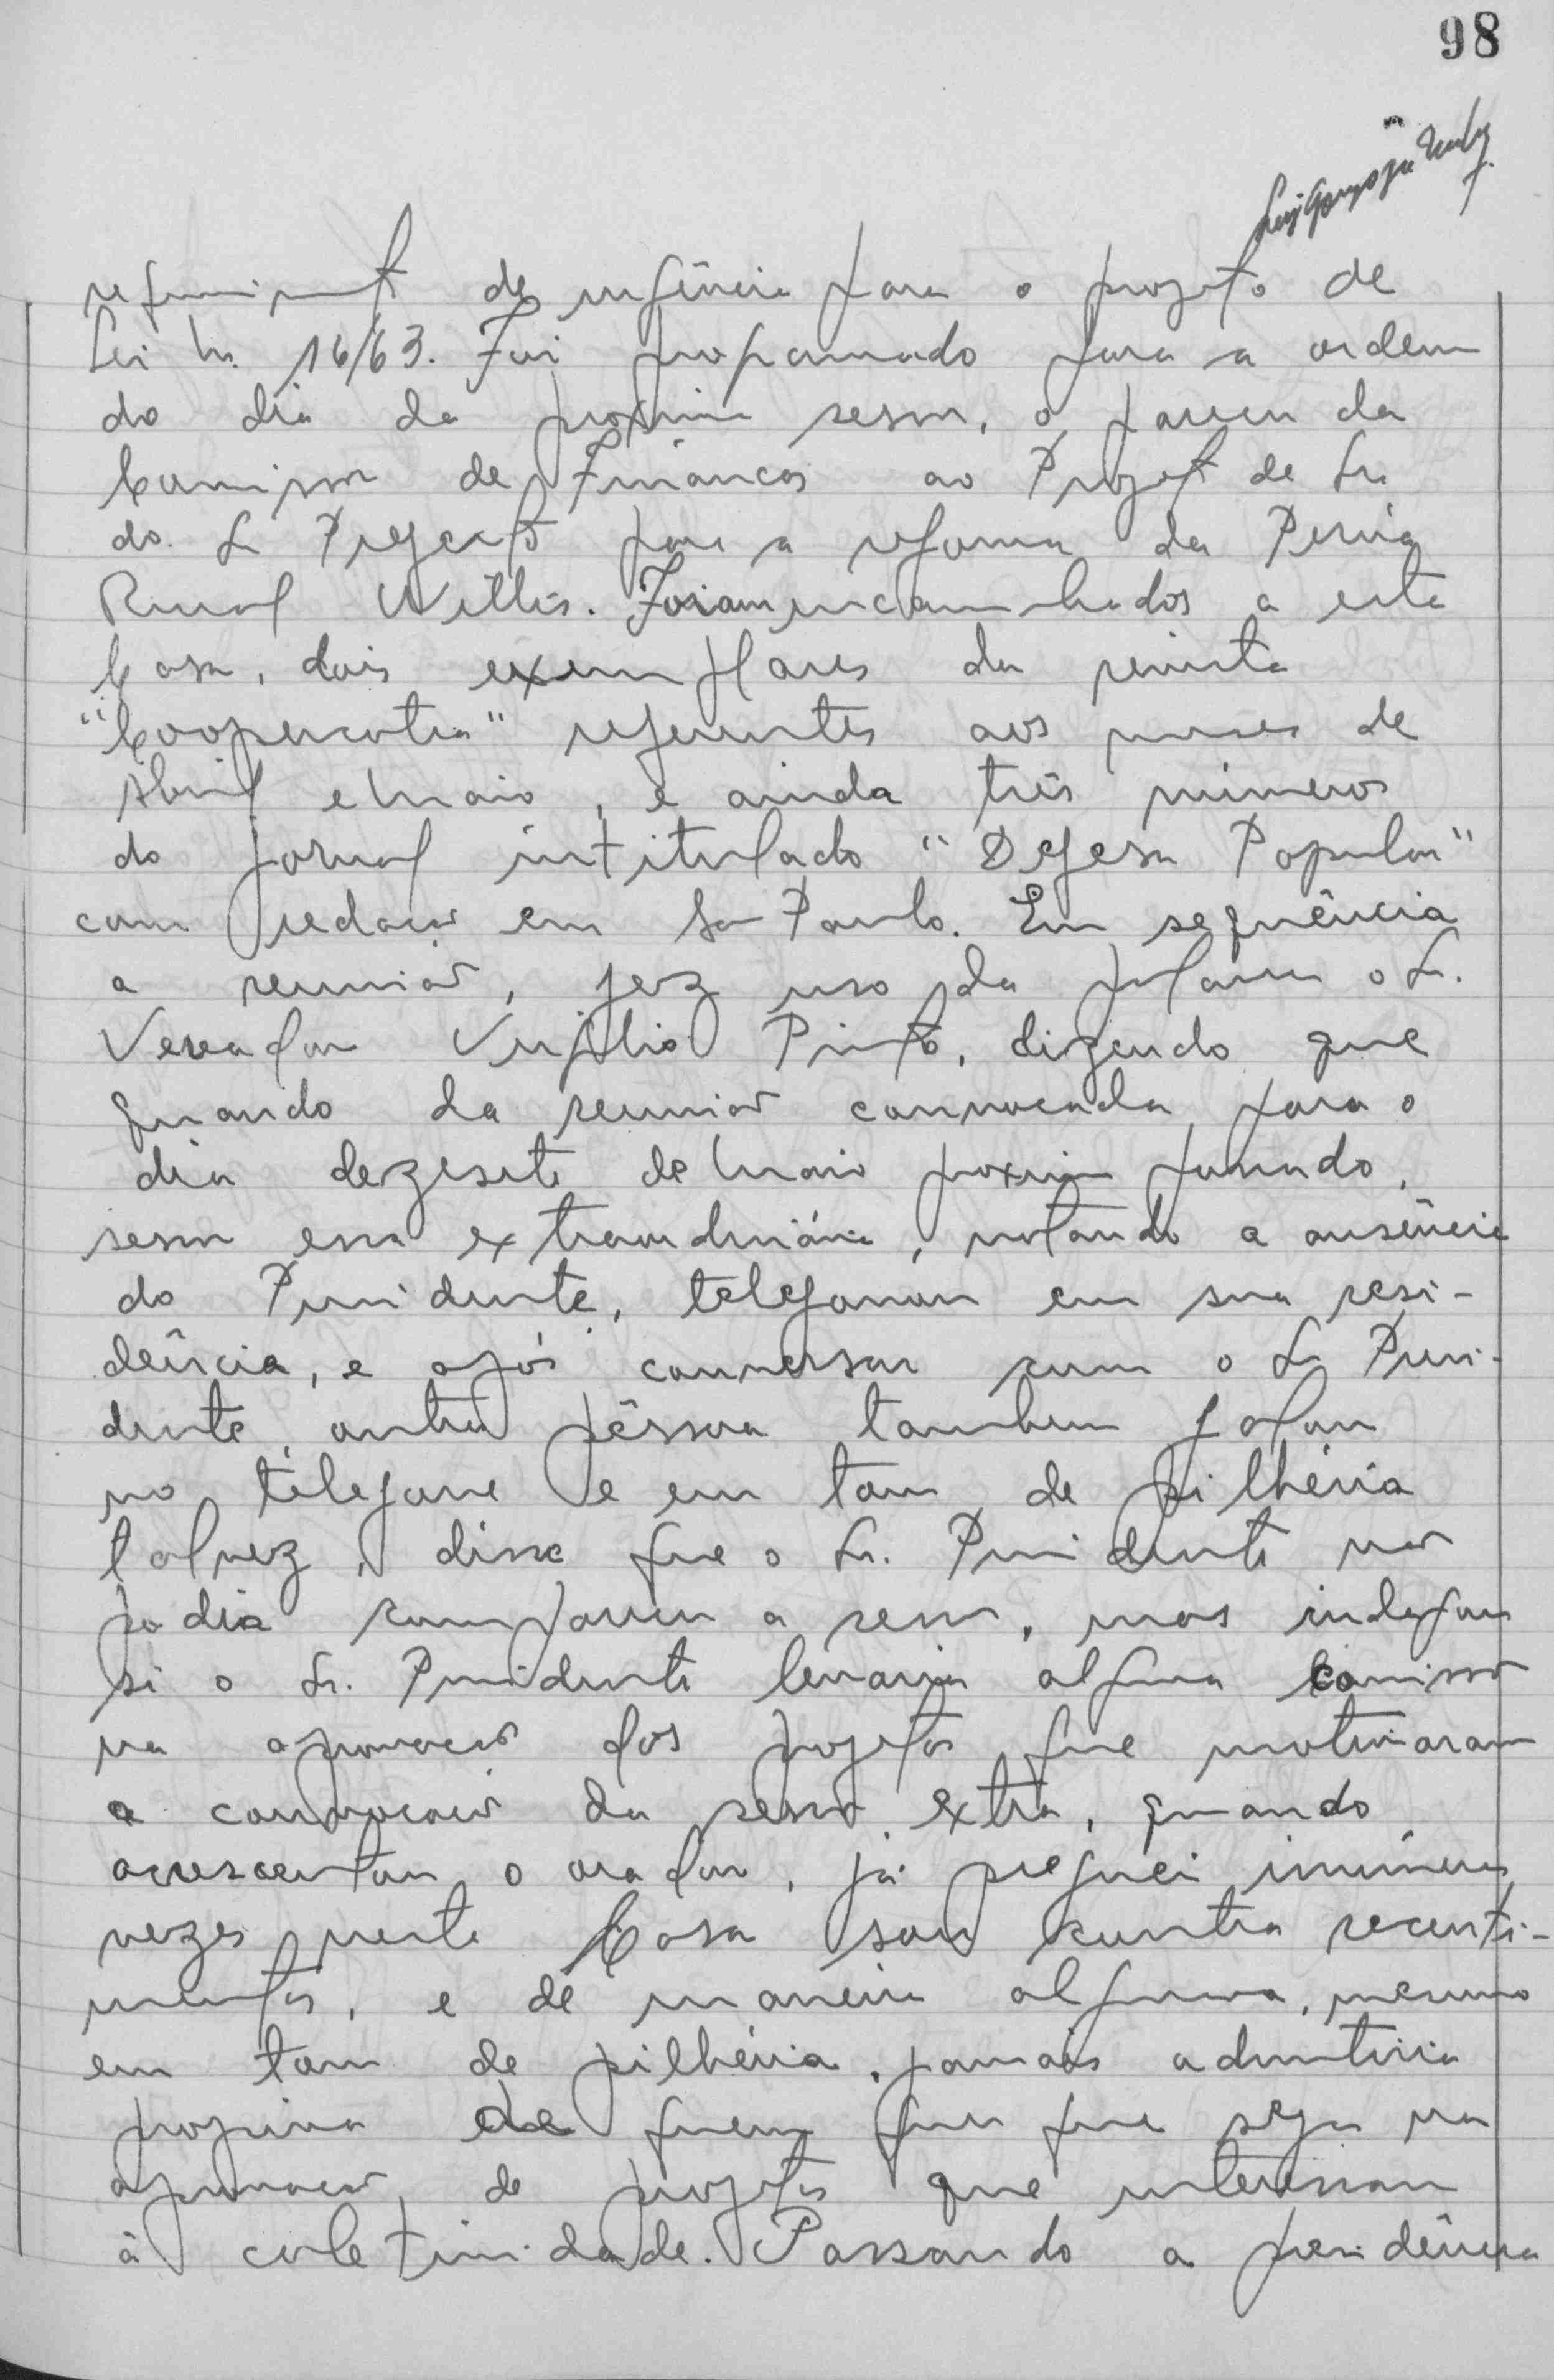 98
requerimento de urgência para o projeto de
Lei n. 16/63. Foi programado para a ordem
do dia da proxima sessão, o parecer da
Comissão de Finanças ao Projeto de Lei
do Sr Prefeito para a reforma da Perúa
Rural Willis. Foram encaminhados a esta
Casa, dois exemplares da revista
"Coopercotia" referentes aos meses de
Abril e Maio, e ainda três números
do jornal intitulado "Defesa Popular"
com redação em São Paulo. Em sequência
a reunião, fez uso da palavra o Sr.
Vereador Virgilio Pinto, dizendo que
quando da reunião convocada para o
dia dezesete de Maio proximo passado,
sessão essa extraordinária, notando a ausência
do Presidente, telefonou em sua resi-
dência, e após conversar com o Sr Presi-
dente, outra pêssoa tambem falou
no telefone e em tom de pilhéria
talvez, disse que o Sr. Presidente não
podia comparecer a sessão, mas indagou
si o Sr. Presidente levaria alguma comissão
na aprovação dos projetos que motivaram
a convocação da sessão extra, quando
acrescentou o orador, já preguei inúmeras
vezes nesta Casa sou contra recenti-
mentos, e de maneira alguma, mesmo
em tom de pilhéria, jamais admitiria
propina de quem quer que seja na
aprovação de projetos que interessam
à coletividade. Passando a presidência